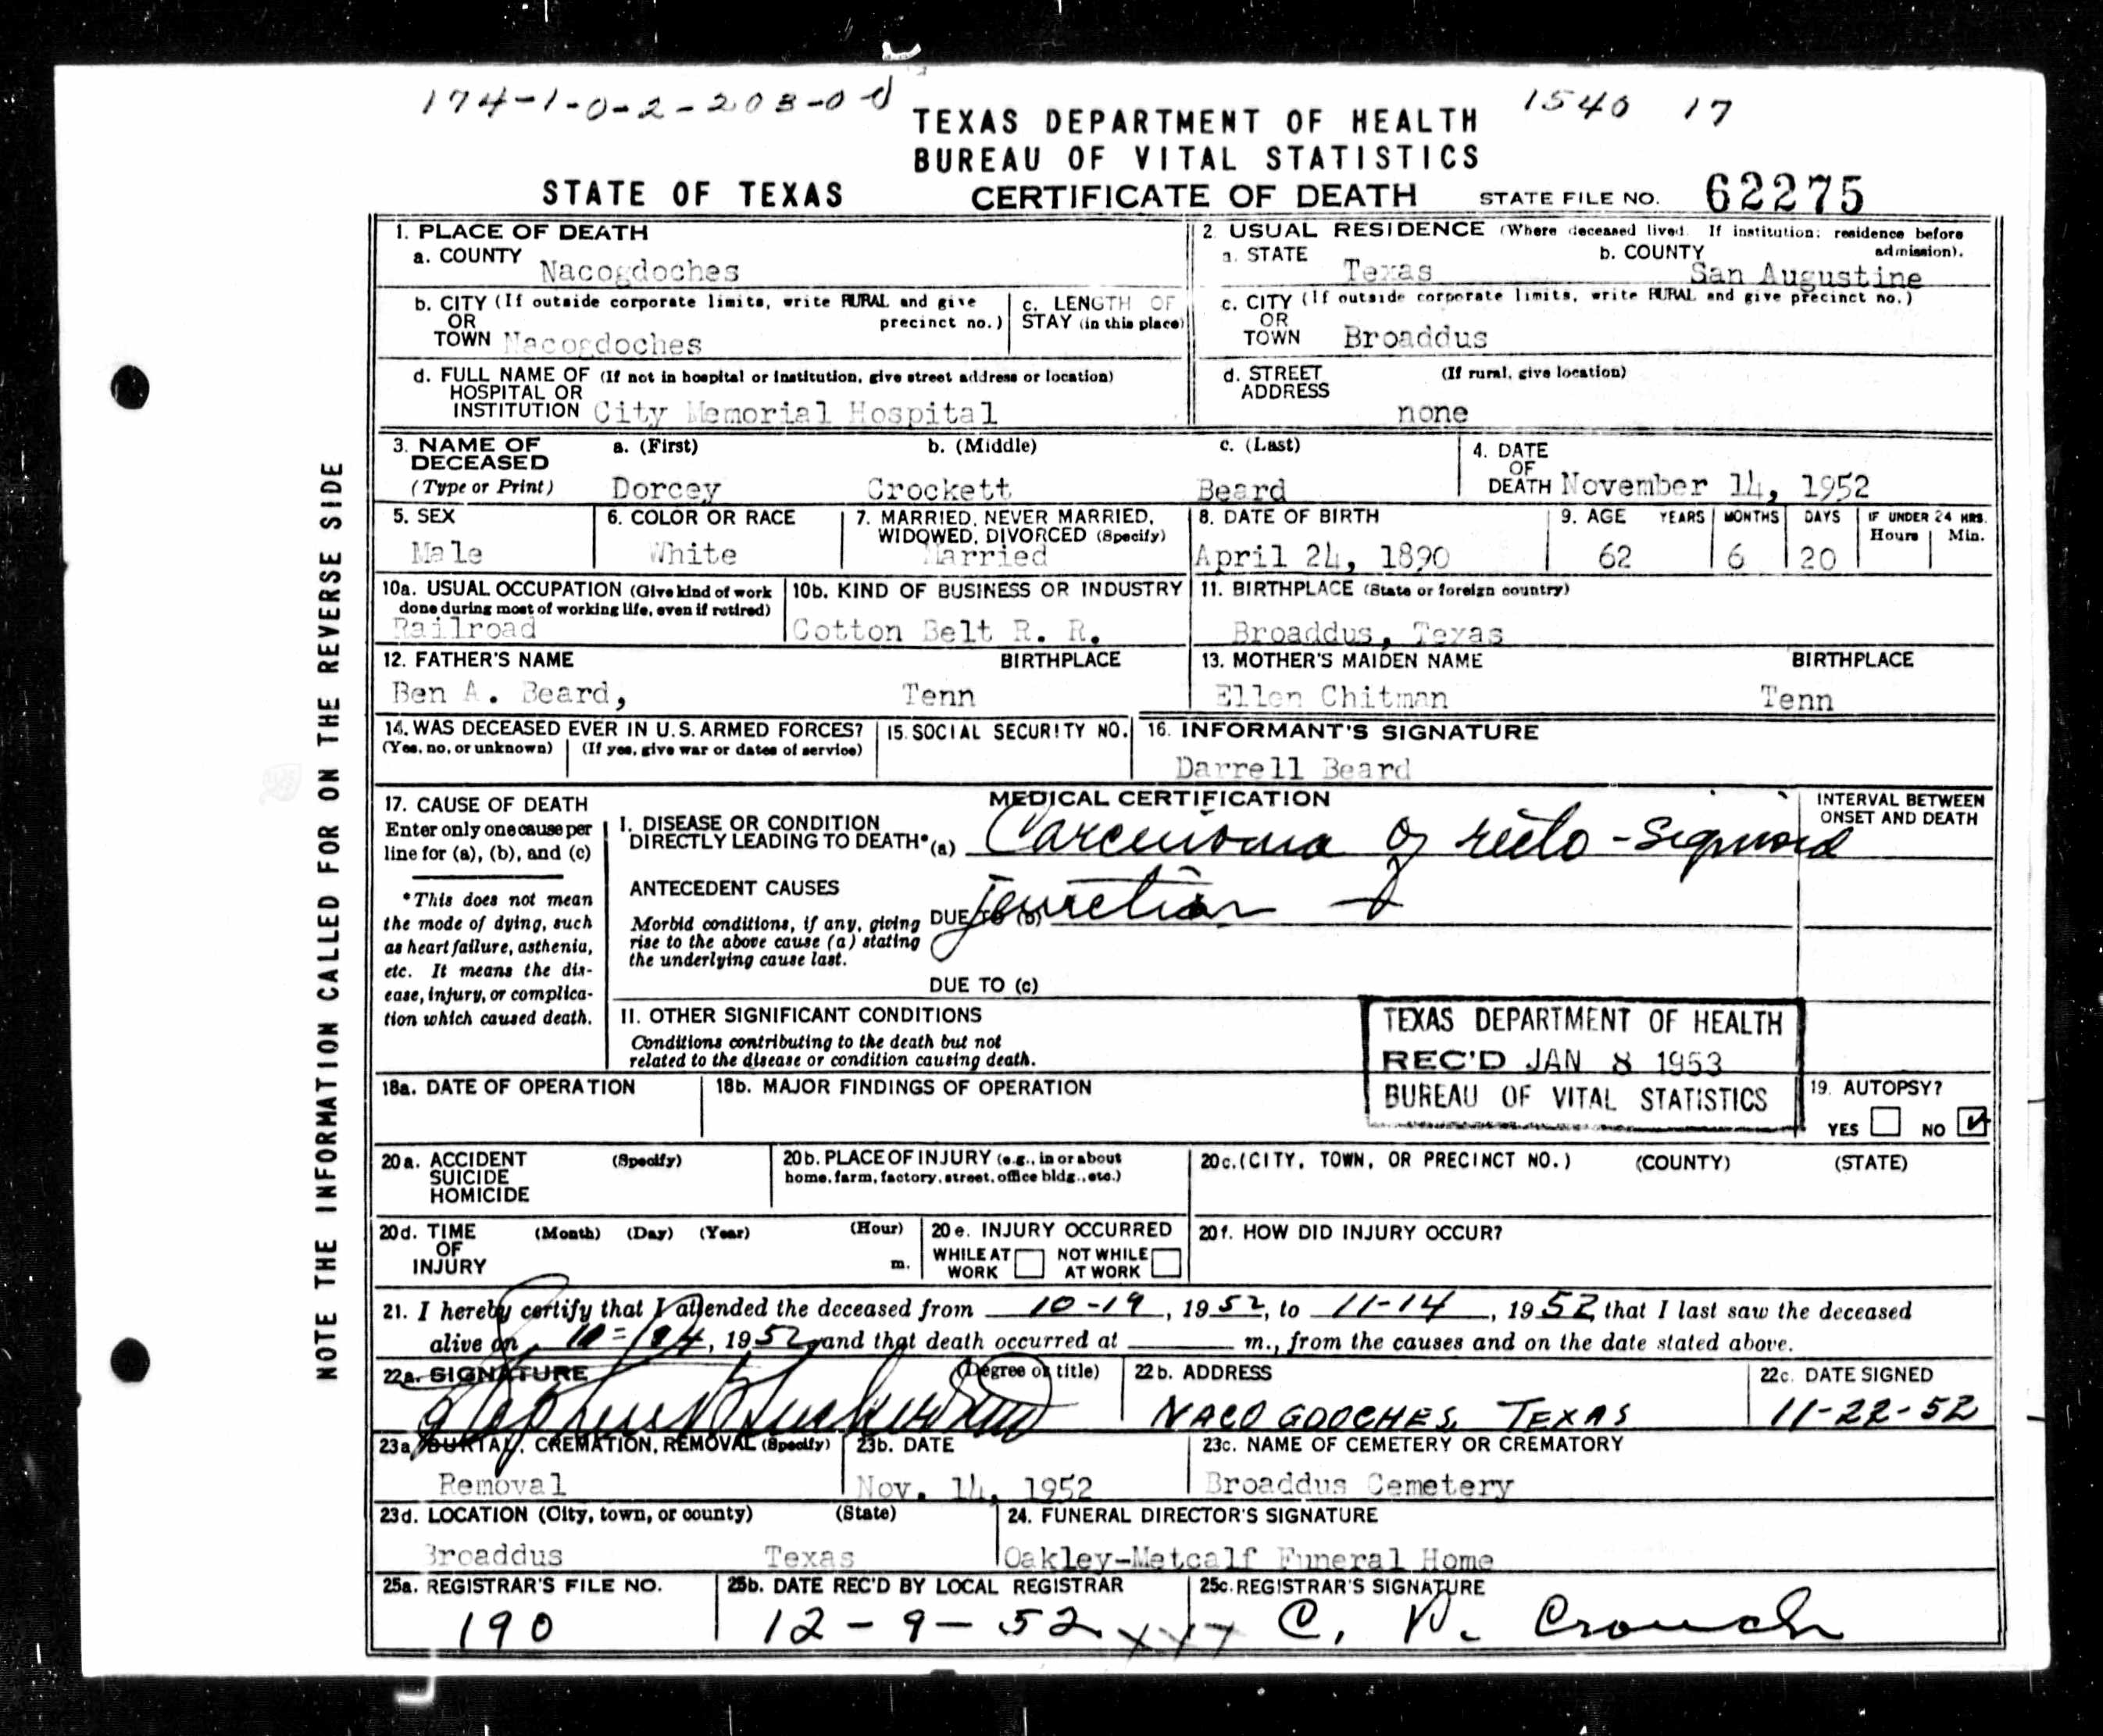 174-1-0-2-203-0-0
1540 17
TEXAS DEPARTMENT OF HEALTH
BUREAU OF VITAL STATISTICS
STATE OF TEXAS CERTIFICATE OF DEATH STATE FILE NO. 62275
NOTE THE INFORMATION CALLED FOR ON THE REVERSE SIDE
1. PLACE OF DEATH
a. COUNTY Nacogdoches
2. USUAL RESIDENCE (Where deceased lived. If institution: residence before admission).
a. STATE Texas b. COUNTY San Augustine
b. CITY (If outside corporate limits, write RURAL and give precinct no.)
OR
TOWN Nacogdoches
c. LENGTH OF
STAY (in this place)
c. CITY (If outside corporate limits, write RURAL and give precinct no.)
OR
TOWN Broaddus
d. FULL NAME OF (If not in hospital or institution, give street address or location)
HOSPITAL OR
INSTITUTION City Memorial Hospital
d. STREET (If rural, give location)
ADDRESS none
3. NAME OF DECEASED (Type or Print)
a. (First) b. (Middle) c. (Last)
Dorcey Crockett Beard
4. DATE OF DEATH November 14, 1952
5. SEX
Male
6. COLOR OR RACE
White
7. MARRIED, NEVER MARRIED,
WIDOWED, DIVORCED (Specify)
Married
8. DATE OF BIRTH
April 24, 1890
9. AGE YEARS MONTHS DAYS IF UNDER 24 HRS.
Hours Min.
62 6 20
10a. USUAL OCCUPATION (Give kind of work
done during most of working life, even if retired)
Railroad
10b. KIND OF BUSINESS OR INDUSTRY
Cotton Belt R. R.
11. BIRTHPLACE (State or foreign country)
Broaddus, Texas
12. FATHER'S NAME BIRTHPLACE
Ben A. Beard, Tenn
13. MOTHER'S MAIDEN NAME BIRTHPLACE
Ellen Chitman Tenn
14. WAS DECEASED EVER IN U.S. ARMED FORCES?
(Yes, no, or unknown) (If yes, give war or dates of service)
15. SOCIAL SECURITY NO.
16. INFORMANT'S SIGNATURE
Darrell Beard
17. CAUSE OF DEATH
Enter only one cause per
line for (a), (b), and (c)
*This does not mean
the mode of dying, such
as heart failure, asthenia,
etc. It means the dis-
ease, injury, or complica-
tion which caused death.
MEDICAL CERTIFICATION
INTERVAL BETWEEN
ONSET AND DEATH
I. DISEASE OR CONDITION
DIRECTLY LEADING TO DEATH* (a) Carcinoma of recto-sigmoid
ANTECEDENT CAUSES
Morbid conditions, if any, giving
rise to the above cause (a) stating
the underlying cause last.
DUE TO (b) junction
DUE TO (c)
II. OTHER SIGNIFICANT CONDITIONS
Conditions contributing to the death but not
related to the disease or condition causing death.
TEXAS DEPARTMENT OF HEALTH
REC'D JAN 8 1953
BUREAU OF VITAL STATISTICS
18a. DATE OF OPERATION
18b. MAJOR FINDINGS OF OPERATION
19. AUTOPSY?
YES NO
20a. ACCIDENT (Specify)
SUICIDE
HOMICIDE
20b. PLACE OF INJURY (e.g., in or about
home, farm, factory, street, office bldg., etc.)
20c. (CITY, TOWN, OR PRECINCT NO.) (COUNTY) (STATE)
20d. TIME (Month) (Day) (Year) (Hour)
OF
INJURY m.
20e. INJURY OCCURRED
WHILE AT WORK NOT WHILE AT WORK
20f. HOW DID INJURY OCCUR?
21. I hereby certify that I attended the deceased from 10-19, 1952, to 11-14, 1952, that I last saw the deceased
alive on , 1952, and that death occurred at m., from the causes and on the date stated above.
22a. SIGNATURE (Degree or title)
22b. ADDRESS
NACOGDOCHES, TEXAS
22c. DATE SIGNED
11-22-52
23a. BURIAL, CREMATION, REMOVAL (Specify)
Removal
23b. DATE
Nov. 14, 1952
23c. NAME OF CEMETERY OR CREMATORY
Broaddus Cemetery
23d. LOCATION (City, town, or county) (State)
Broaddus Texas
24. FUNERAL DIRECTOR'S SIGNATURE
Oakley-Metcalf Funeral Home
25a. REGISTRAR'S FILE NO.
190
25b. DATE REC'D BY LOCAL REGISTRAR
12-9-52
25c. REGISTRAR'S SIGNATURE
Crouch